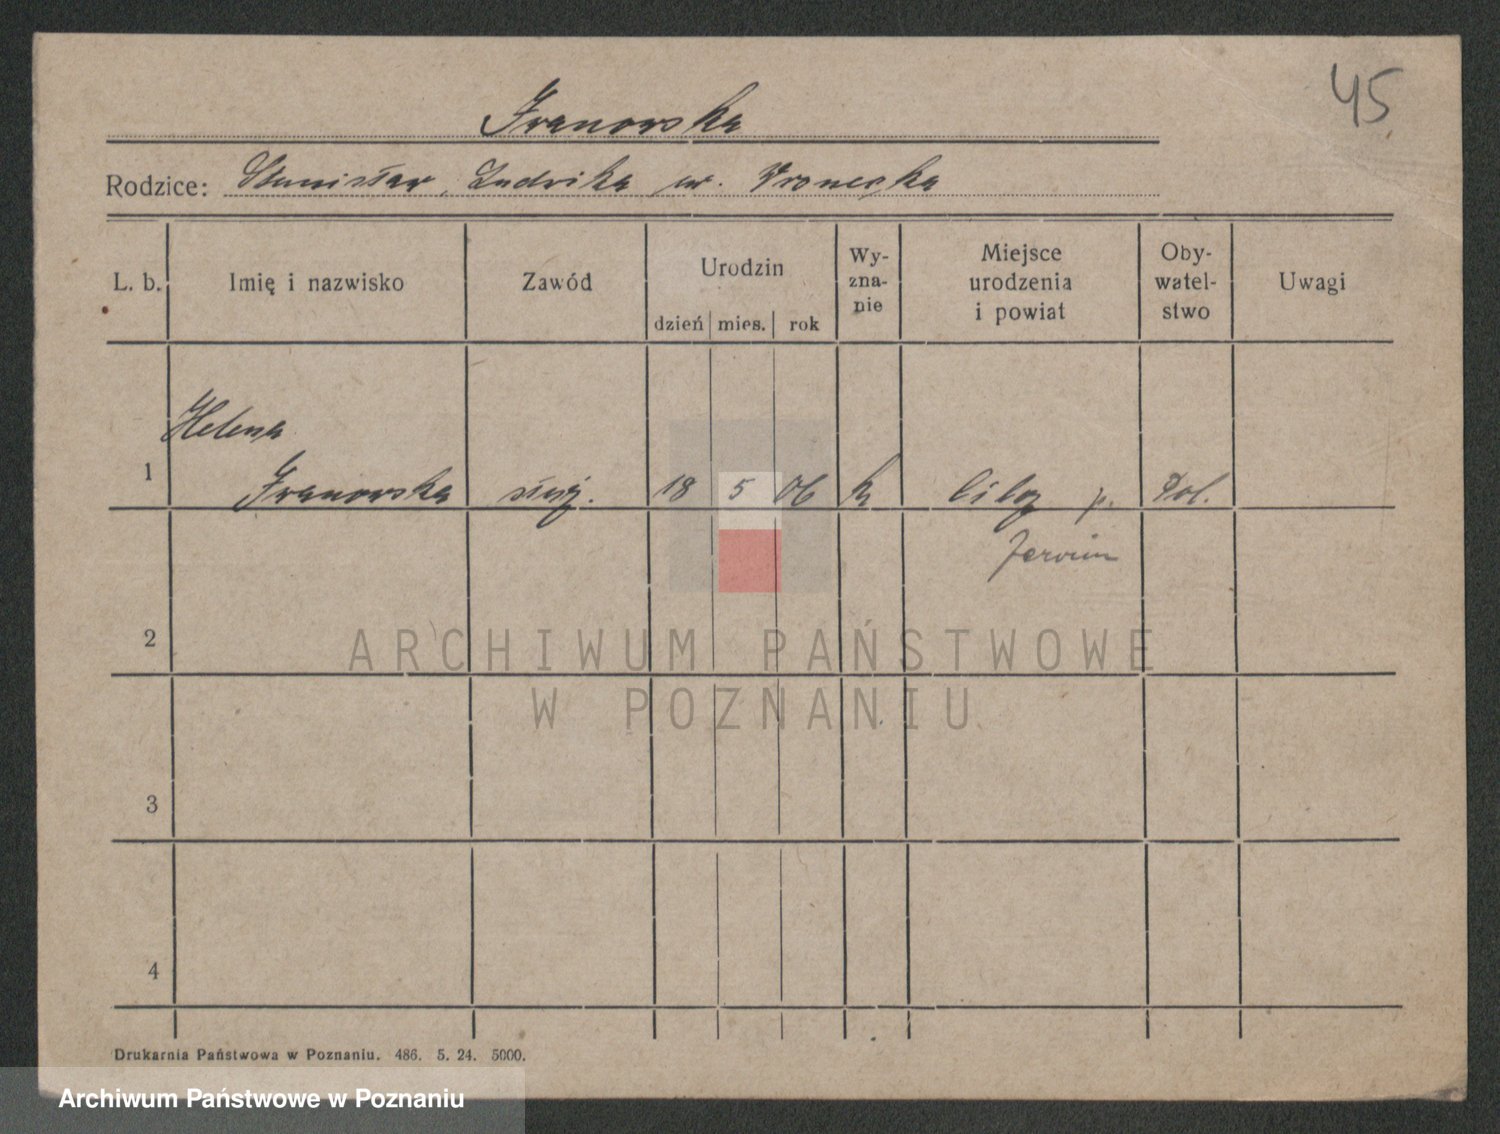 45
Iwanowska
Rodzice: Stanisław, Ludwika ur. Wronecka
L. b. Imię i nazwisko Zawód Urodzin dzień mies. rok Wy-zna-nie Miejsce urodzenia i powiat Oby-watel-stwo Uwagi
Helena
1 Iwanowska służ. 18 5 06 k p. Pol.
2
3
4
Drukarnia Państwowa w Poznaniu. 486. 5. 24. 5000.
ARCHIWUM PAŃSTWOWE
W POZNANIU
Archiwum Państwowe w Poznaniu